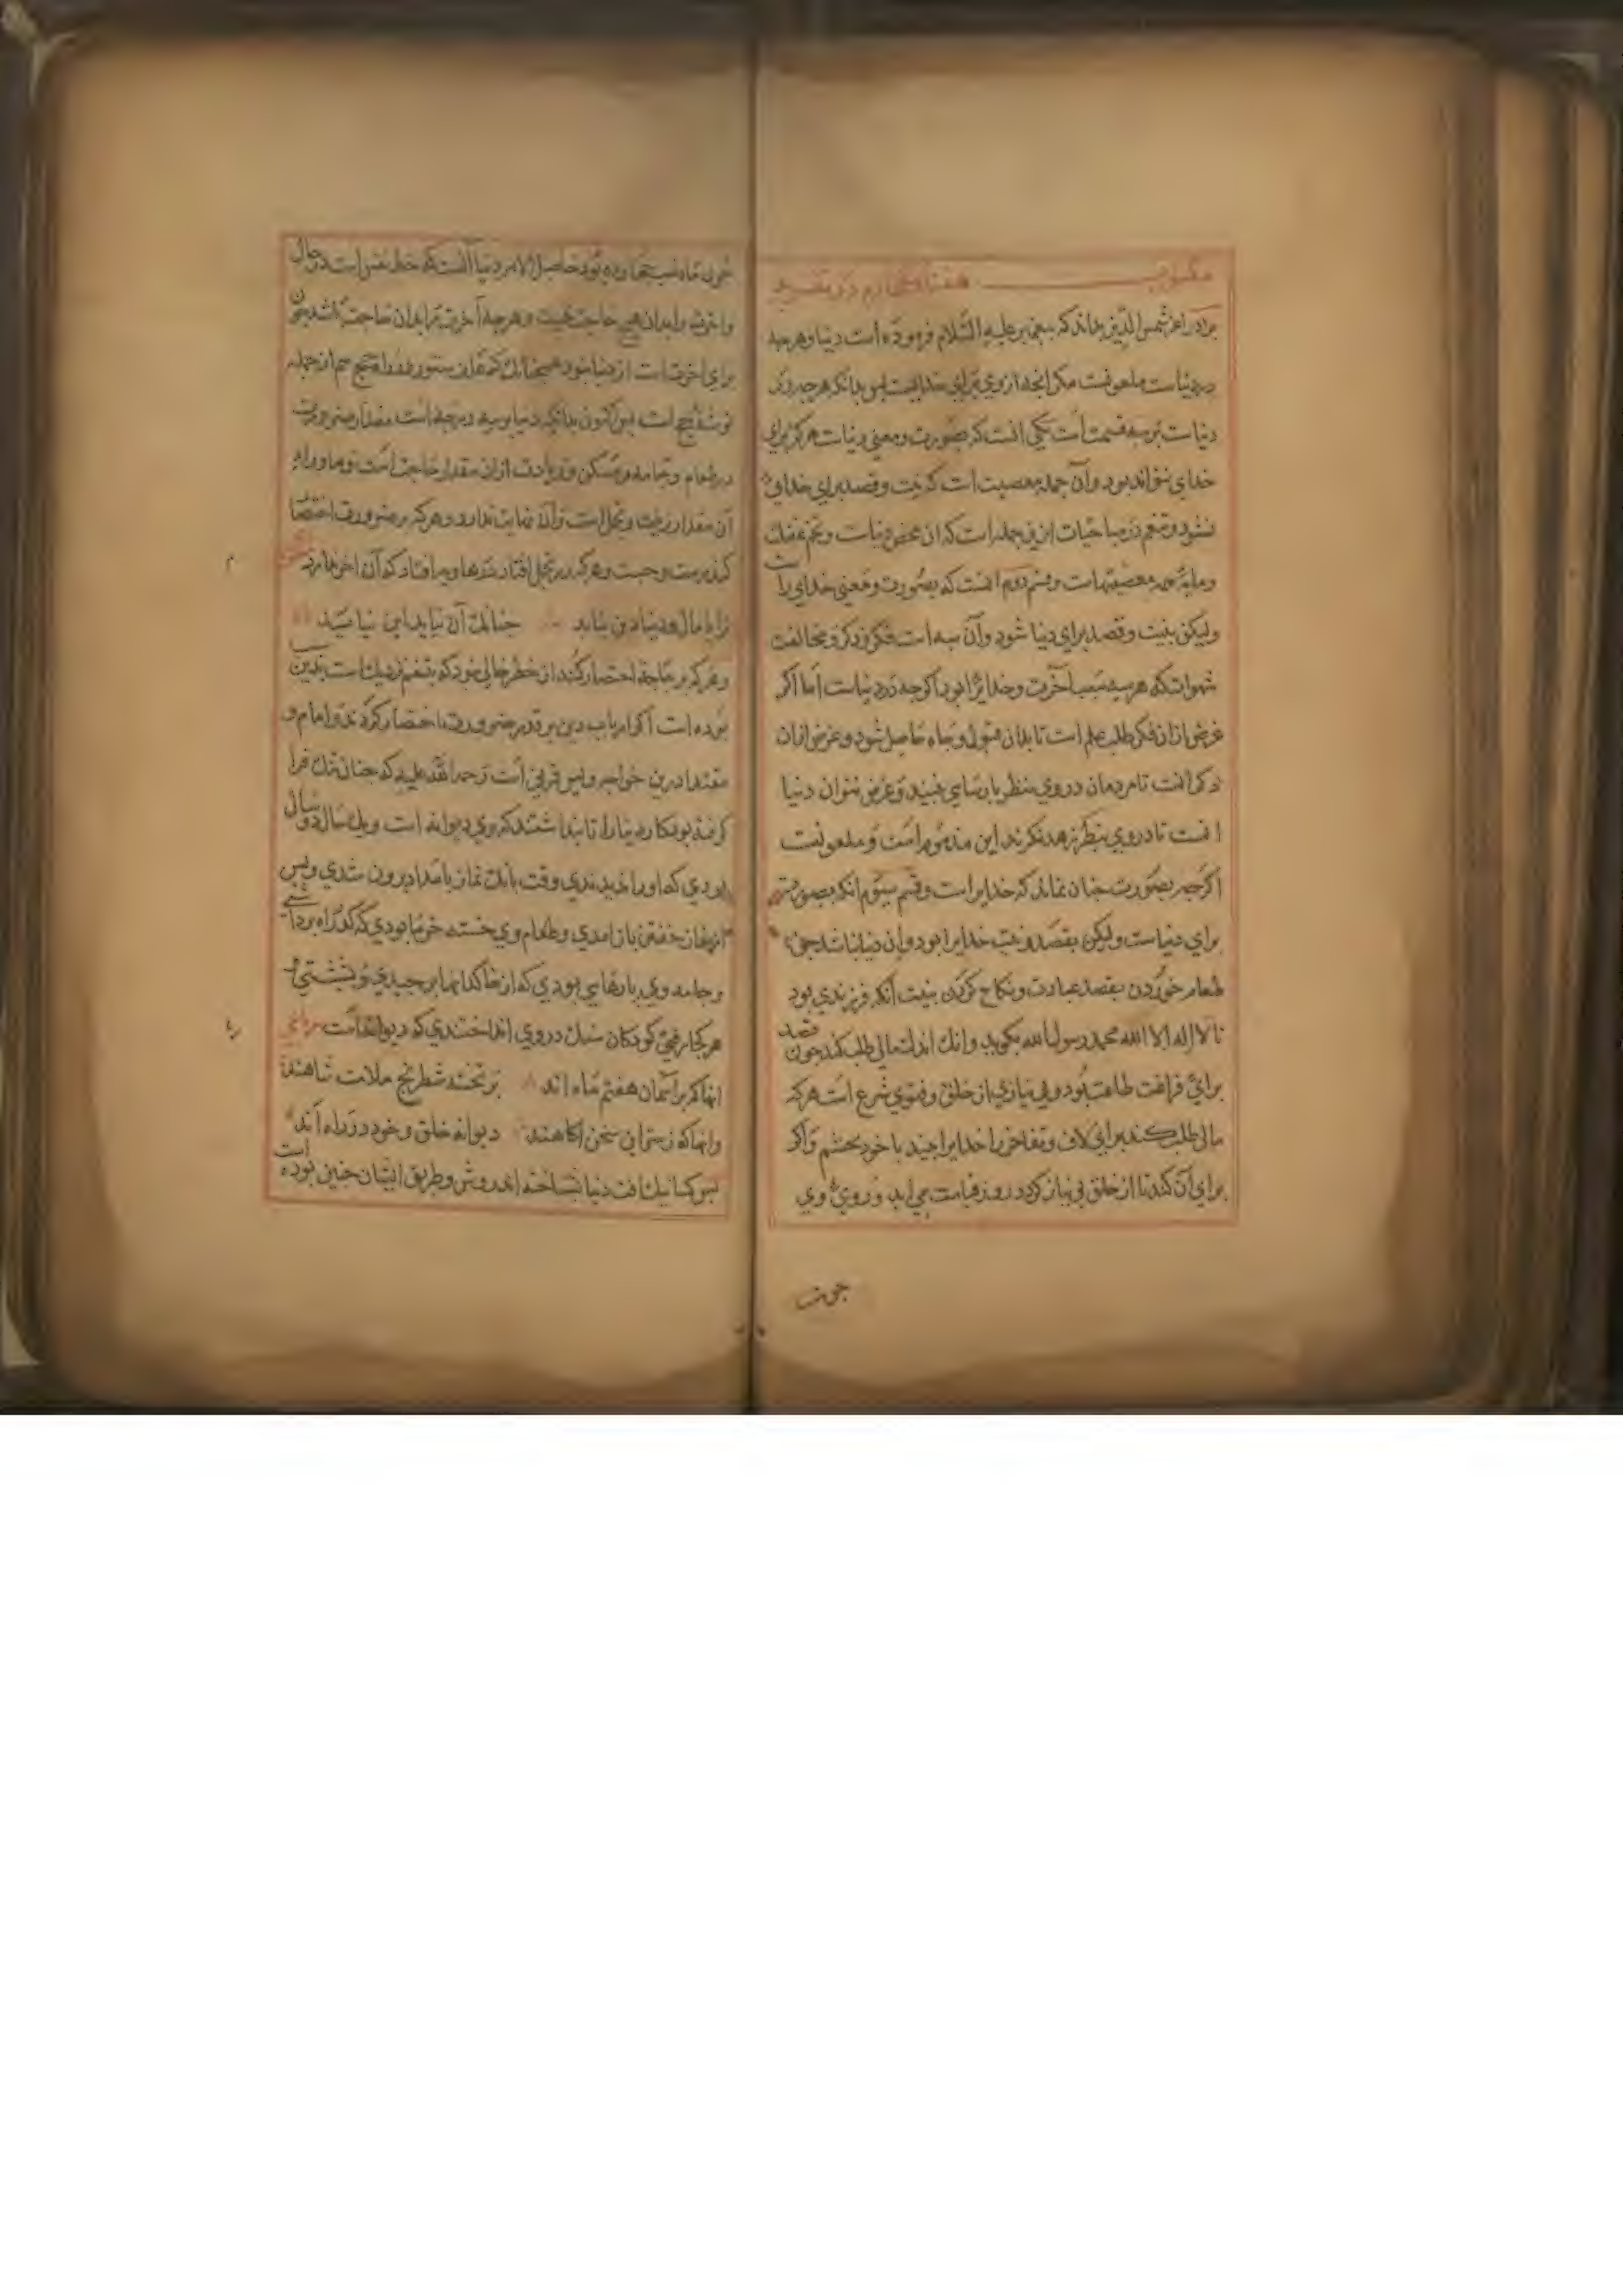 مکتوب هفتاد و چهارم در
برادر اعز شمس الدین بداند که پیغمبر علیه السلام فرموده است دنیا و هرچه
در دنیاست ملعونست مکر آنچه از وی برای خدایست پس بدانکه هرچه در
دنیاست بر سه قسمت است یکی آنست که بصورت و معنی دنیاست هرکز برای
خدای نتواند بود و آن جمله معصیت است که نیت و قصد برای خدای
نشود و تنعم در مباحات ازین جمله است که آن محض دنیاست و تخم غفلت
و مایه همه معصیتهاست و قسم دوم آنست که بصورت و معنی خدای راست
ولیکن بنیت و قصد برای دنیا شود و آن سه است فکر و ذکر و مخالفت
شهوات که هر سه سبب آخرت و خدایرا بود اکرچه در دنیاست اما اکر
غرض ازان فکر طلب علم است تا بدان قبول و جاه حاصل شود و غرض ازان
ذکر آنست تا مردمان در وی بنظر پارسایی بینند و غرض ازان دنیا
آنست تا در وی بنظر زهد نکرند این مذموم است و ملعونست
اکرچه بصورت چنان نماید که خدایراست و قسم سیوم آنکه بصورت
برای دنیاست ولیکن بقصد و نیت خدایرا بود و آن دنیا نباشد چون
طعام خوردن بقصد عبادت و نکاح کردن بنیت آنکه فرزندی بود
تا لا اله الا الله محمد رسول الله بکوید و اندک مالی طلب کند چون قصد
برای فراغت طاعت بود و بی نیازی از خلق و فتوی شرع است هرکه
مالی طلب کند برای لاف و تفاخر را خدایرا بیند با خود بخشم و اکر
برای آن کند تا از خلق بی نیاز کردد روز قیامت می آید و روی وی
چون
چون ماه شب چهارده بود حاصل الامر دنیا آنست که حظ نفس است در حال
و آخرت را بدان هیچ حاجت نیست و هرچه آخرت را بدان حاجت باشد چون
برای آخرت است از دنیا نبود همچنانک علف ستور در راه حج هم از جمله
توشه حج است پس اکنون بدانکه دنیا بر سه درجه است مقدار ضرورت
در طعام و جامه و مسکن و زیادت ازان مقدار حاجت است و ماورای
آن مقدار زینت و تجمل است و آن نهایت ندارد و هرکه بر ضرورت اختصار
کند برست و جست و هرکه در تجمل افتاد در هاویه افتاد که آن آخر ندارد
ترا با مال دنیا دین نیاید چنانک آن نیاید این نیاید
و هرکه بر حاجت اختصار کند از خطر خالی نبود که بتنعم نزدیک است
بوده است اکابر ارباب دین بر قدر ضرورت اختصار کردند و امام و
مقتدا درین خواجه اویس قرنی است رحمة الله علیه که چنان تنک فرا
کرفته بود کار دنیا را تا پنداشتند که وی دیوانه است و یک سال و دو سال
بودی که او را ندیدندی وقت بانک نماز بامداد بیرون شدی و پس
از نماز خفتن باز آمدی و طعام وی خسته خرما بودی که از راه برداشتی
و جامه وی پارهایی بودی که از خاکدانها برچیدی و بشستی
هر کجا رفتی کودکان سنک در وی انداختندی که دیوانه است
آنها که بر آسمان هفتم ماه اند بر تخته شطرنج ملامت شاهند
وانها که ز سر این سخن آکاهند دیوانه خلق و خود در راه آند
پس کسانیک آفت دنیا بشناخته اند روش و طریق ایشان چنین بوده است